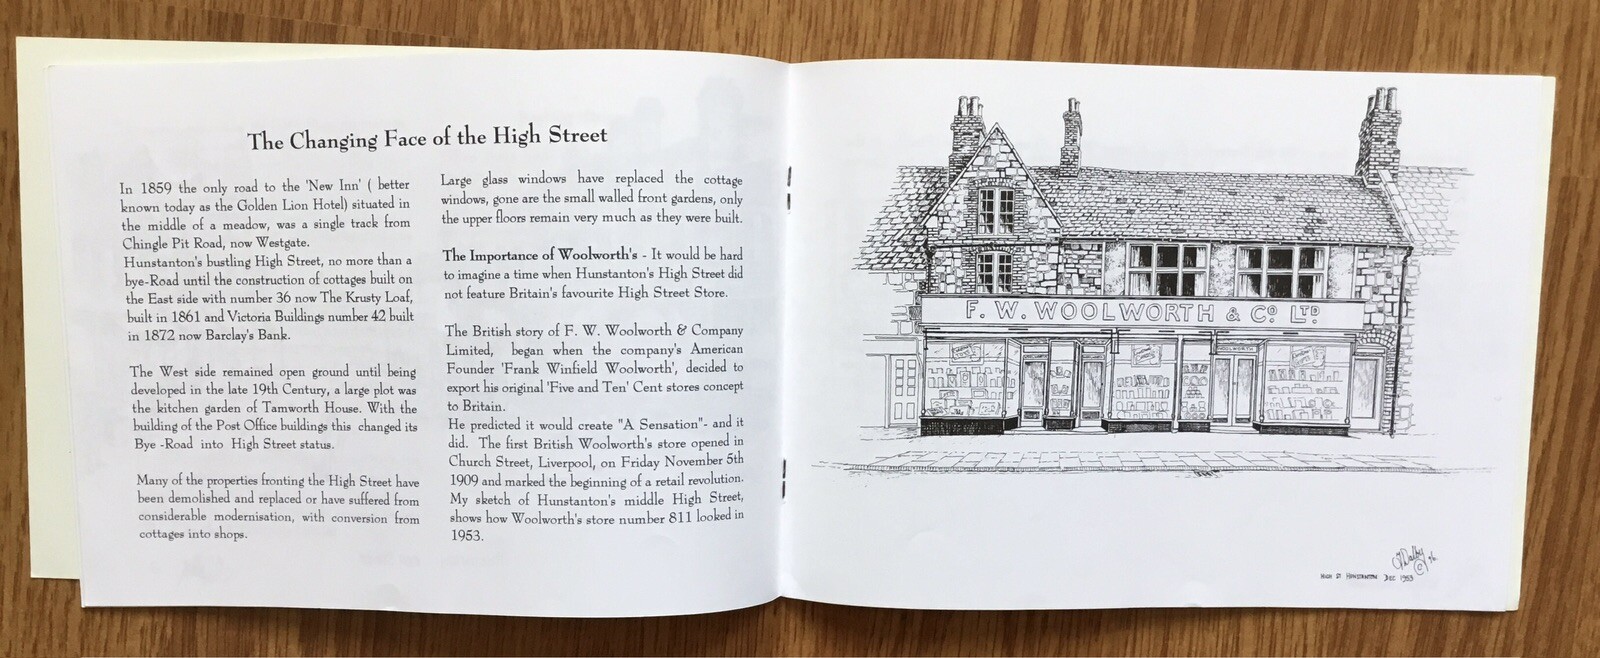 The Changing Face of the High Street
In 1859 the only road to the 'New Inn' ( better
known today as the Golden Lion Hotel) situated in
the middle of a meadow, was a single track from
Chingle Pit Road, now Westgate.
Hunstanton's bustling High Street, no more than a
bye-Road until the construction of cottages built on
the East side with number 36 now The Krusty Loaf,
built in 1861 and Victoria Buildings number 42 built
in 1872 now Barclay's Bank.
The West side remained open ground until being
developed in the late 19th Century, a large plot was
the kitchen garden of Tamworth House. With the
building of the Post Office buildings this changed its
Bye -Road into High Street status.
Many of the properties fronting the High Street have
been demolished and replaced or have suffered from
considerable modernisation, with conversion from
cottages into shops.
Large glass windows have replaced the cottage
windows, gone are the small walled front gardens, only
the upper floors remain very much as they were built.
The Importance of Woolworth's - It would be hard
to imagine a time when Hunstanton's High Street did
not feature Britain's favourite High Street Store.
The British story of F. W. Woolworth & Company
Limited, began when the company's American
Founder 'Frank Winfield Woolworth', decided to
export his original 'Five and Ten' Cent stores concept
to Britain.
He predicted it would create "A Sensation"- and it
did. The first British Woolworth's store opened in
Church Street, Liverpool, on Friday November 5th
1909 and marked the beginning of a retail revolution.
My sketch of Hunstanton's middle High Street,
shows how Woolworth's store number 811 looked in
1953.
F. W. WOOLWORTH & CO. LTD.
HIGH ST HUNSTANTON DEC 1953
Dalby
©